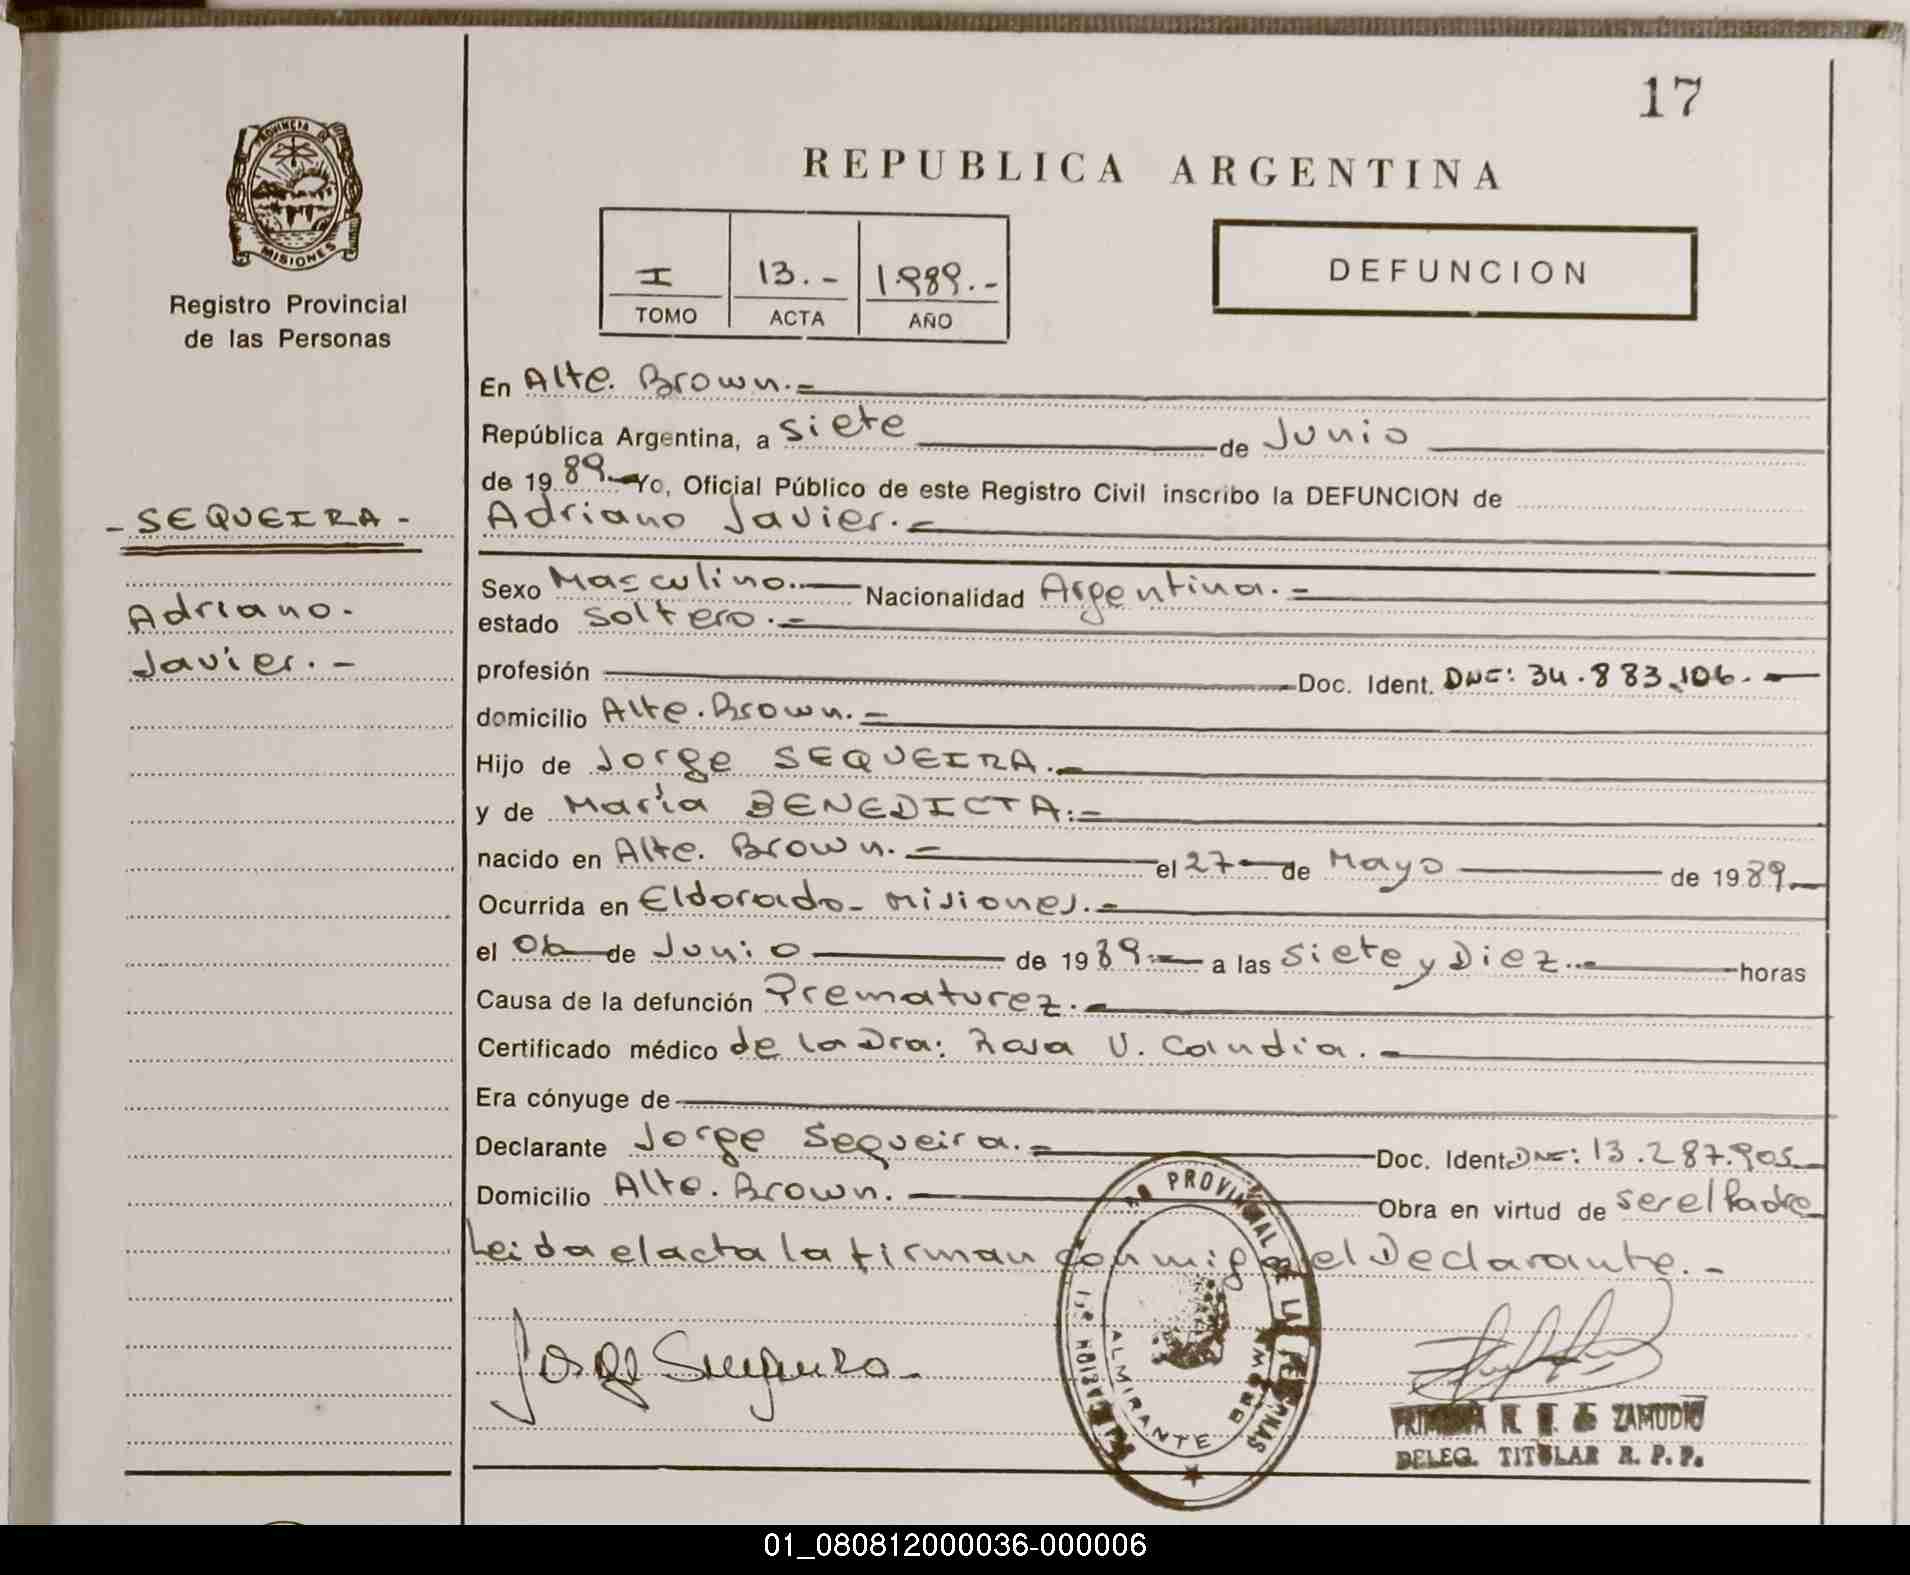 17
PROVINCIA DE
MISIONES
Registro Provincial
de las Personas
REPUBLICA ARGENTINA
I 13.- 1.989.-
TOMO ACTA AÑO
DEFUNCION
- SEQUEIRA -
Adriano.
Javier.-
En Alte. Brown.-
República Argentina, a siete de Junio
de 19 89.- Yo, Oficial Público de este Registro Civil inscribo la DEFUNCION de
Adriano Javier.-
Sexo Masculino.- Nacionalidad Argentina.-
estado soltero.-
profesión Doc. Ident. DNI: 34.883.106.-
domicilio Alte. Brown.-
Hijo de Jorge SEQUEIRA.-
y de María BENEDICTA:-
nacido en Alte. Brown.- el 27- de Mayo de 1989.-
Ocurrida en Eldorado- Misiones.-
el 06 de Junio de 1989.- a las siete y Diez.- horas
Causa de la defunción Prematurez.-
Certificado médico de la Dra: Rosa V. Candia.-
Era cónyuge de
Declarante Jorge Sequeira.- Doc. Ident. DNI: 13.287.905
Domicilio Alte. Brown. Obra en virtud de ser el Padre
Leida el acta la firman conmigo el Declarante.-
Jorge Sequeira
PROVINCIAL DE LAS PERSONAS
ALMIRANTE BROWN
ZAMUDIO
DELEG. TITULAR R. P. P.
01_080812000036-000006